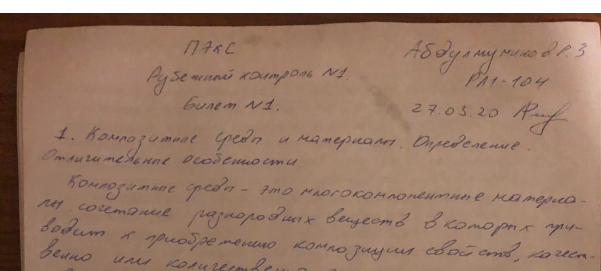 ПЭКС
Абдулмуминов Р. З
Рубежный контроль №1.
РЛ1-104
Билет №1.
27.05.20
1. Композитные среды и материалы. Определение.
Отличительные особенности.
Композитные среды - это многокомпонентные материа-
лы сочетание разнородных веществ в которых при-
водит к приобретению композиции свойств, качест-
венно или количественно